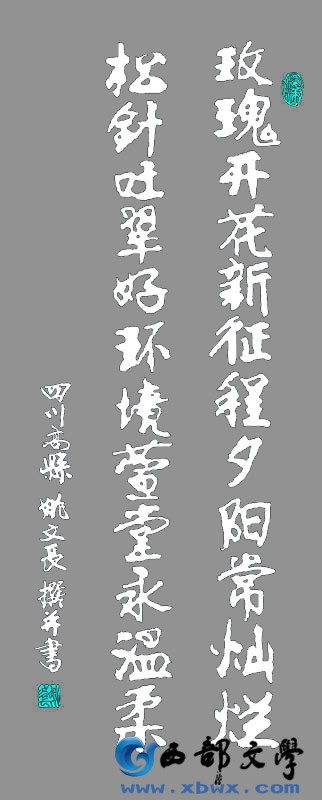 玫瑰开花新征程夕阳常灿烂
松针吐翠好环境萱堂永温柔
四川高縣 姚文長 撰并書
西部文學
www.xbwx.com